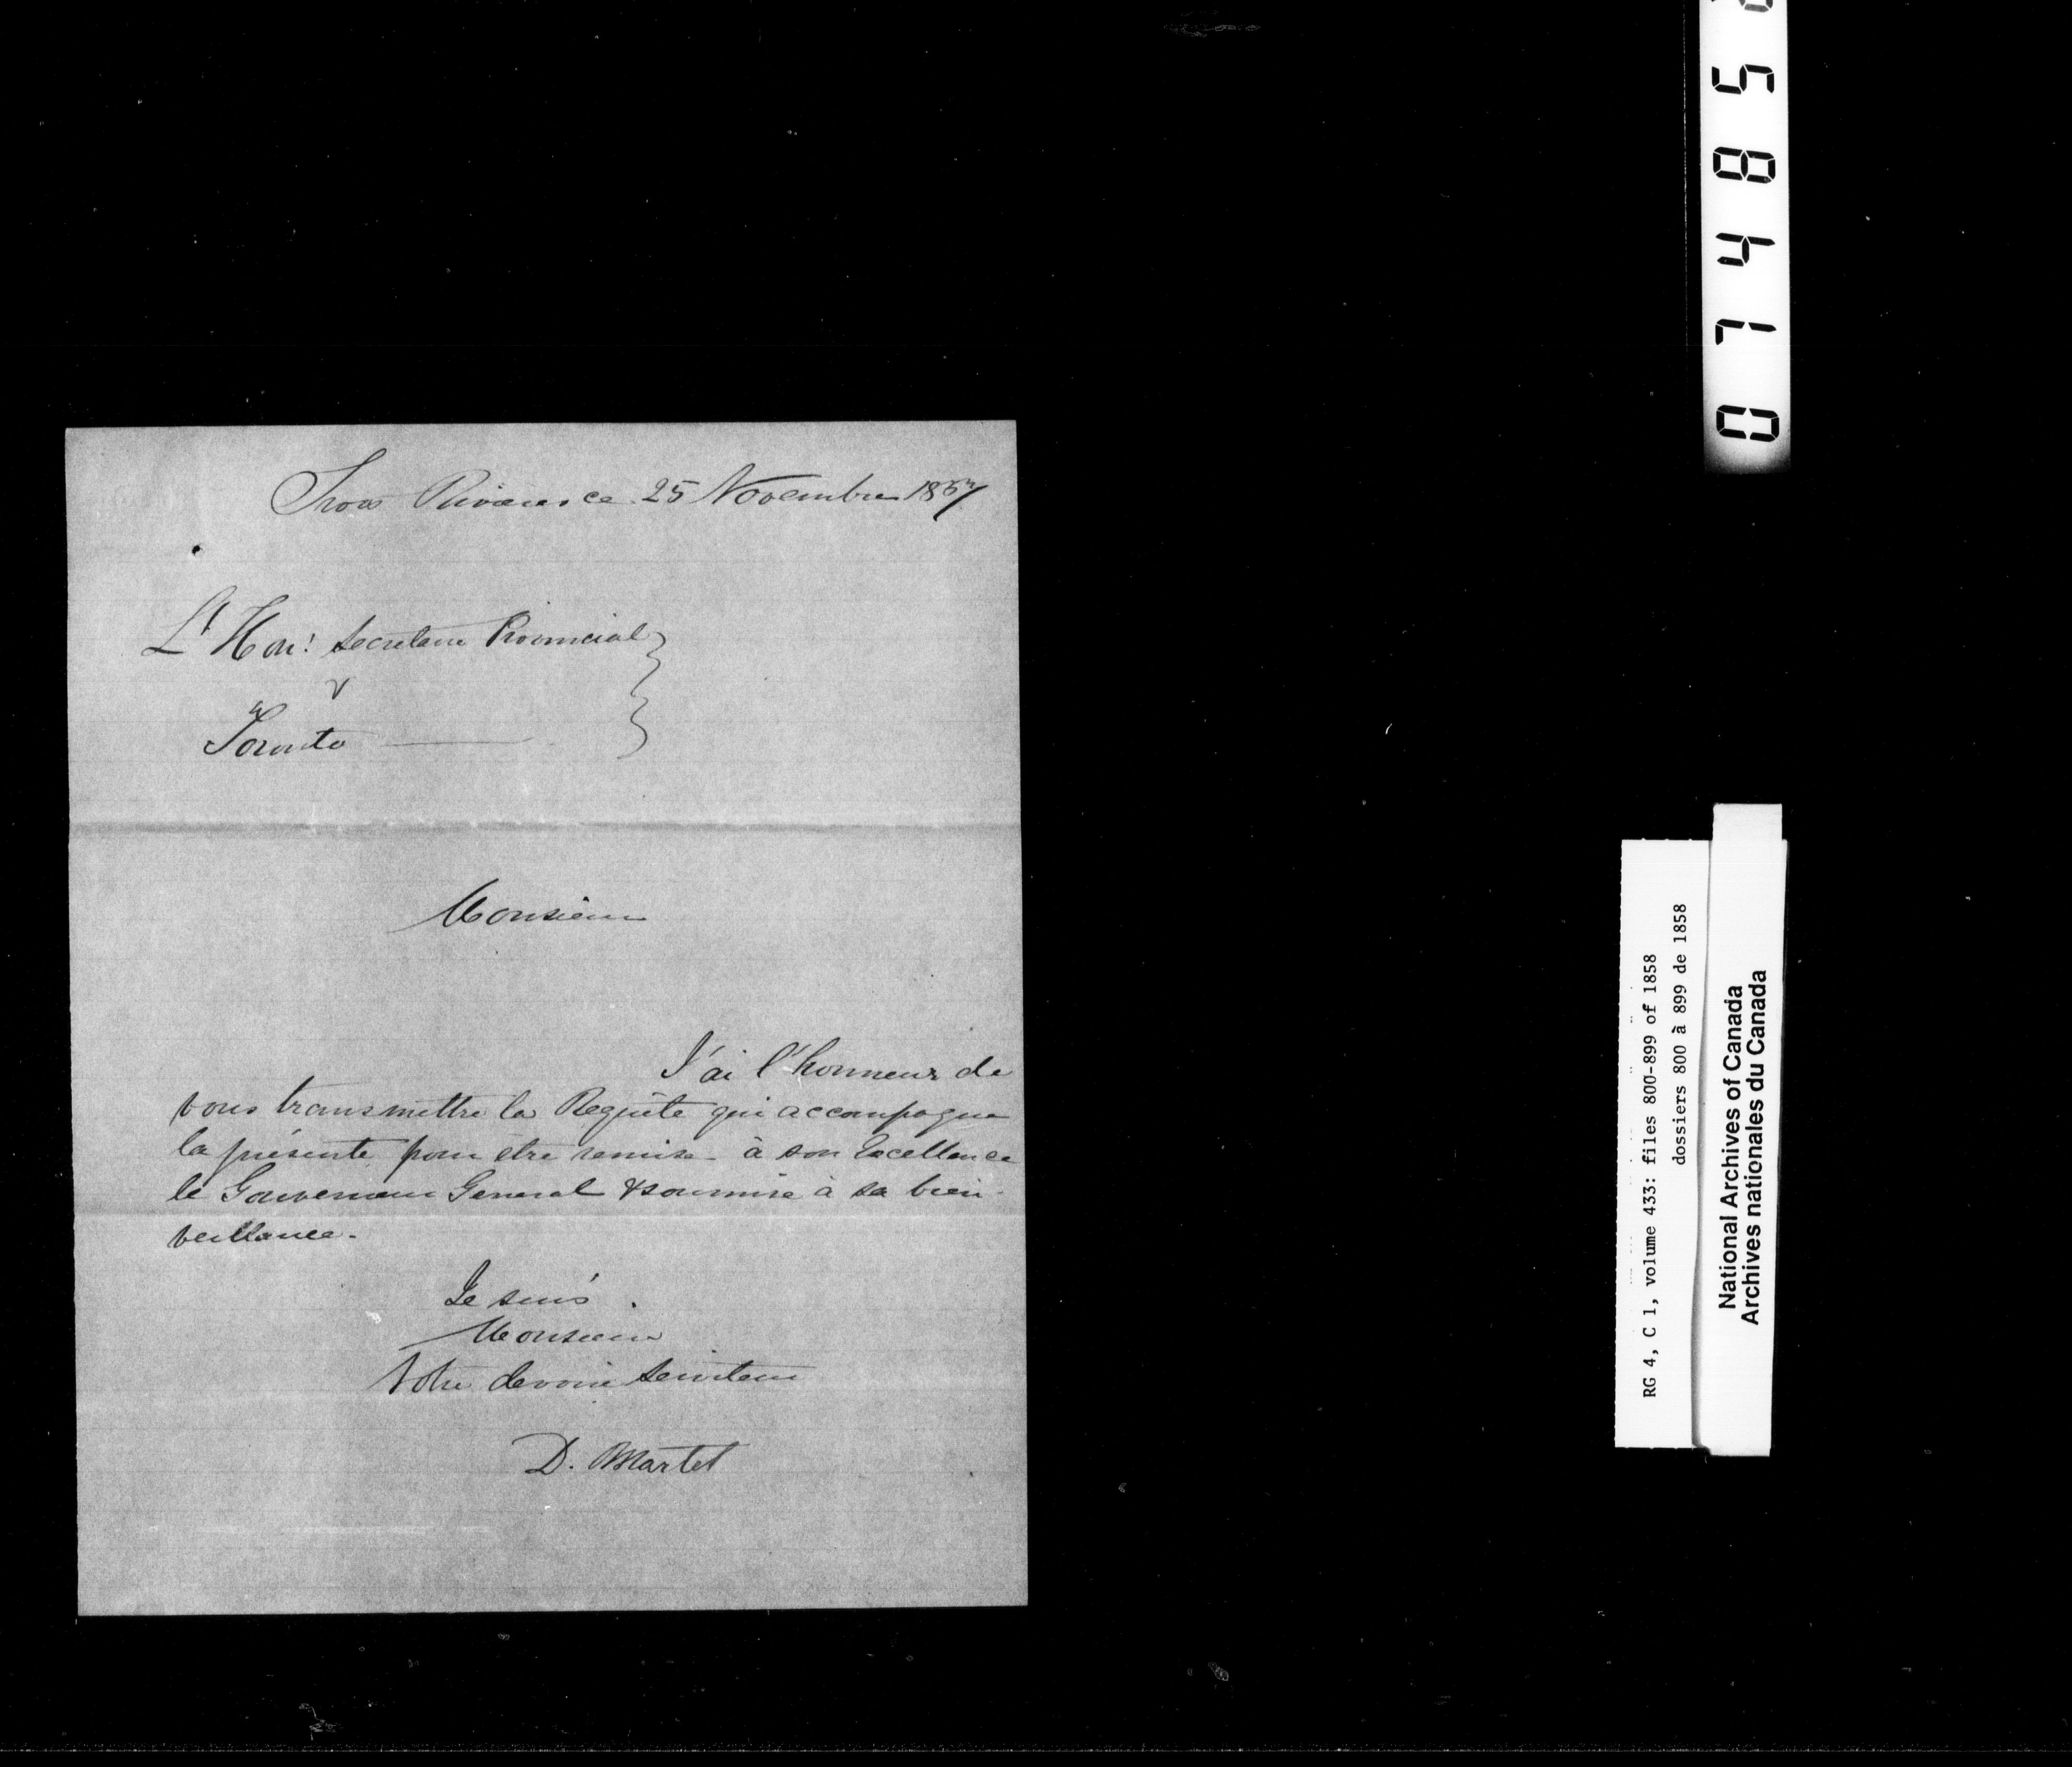 Trois Rivieres ce 25 Novembre 1857
L'Hon: Secretaire Provincial
Toronto
Monsieur
J'ai l'honneur de
vous transmettre la Requête qui accompagne
la présente pour etre remise à son Excellence
le Gouverneur General & soumise à sa bien-
veillance.
Je suis
Monsieur
Votre devoué serviteur
D. Martel
0 7 4 8 5
RG 4, C 1, volume 433: files 800-899 of 1858
dossiers 800 à 899 de 1858
National Archives of Canada
Archives nationales du Canada